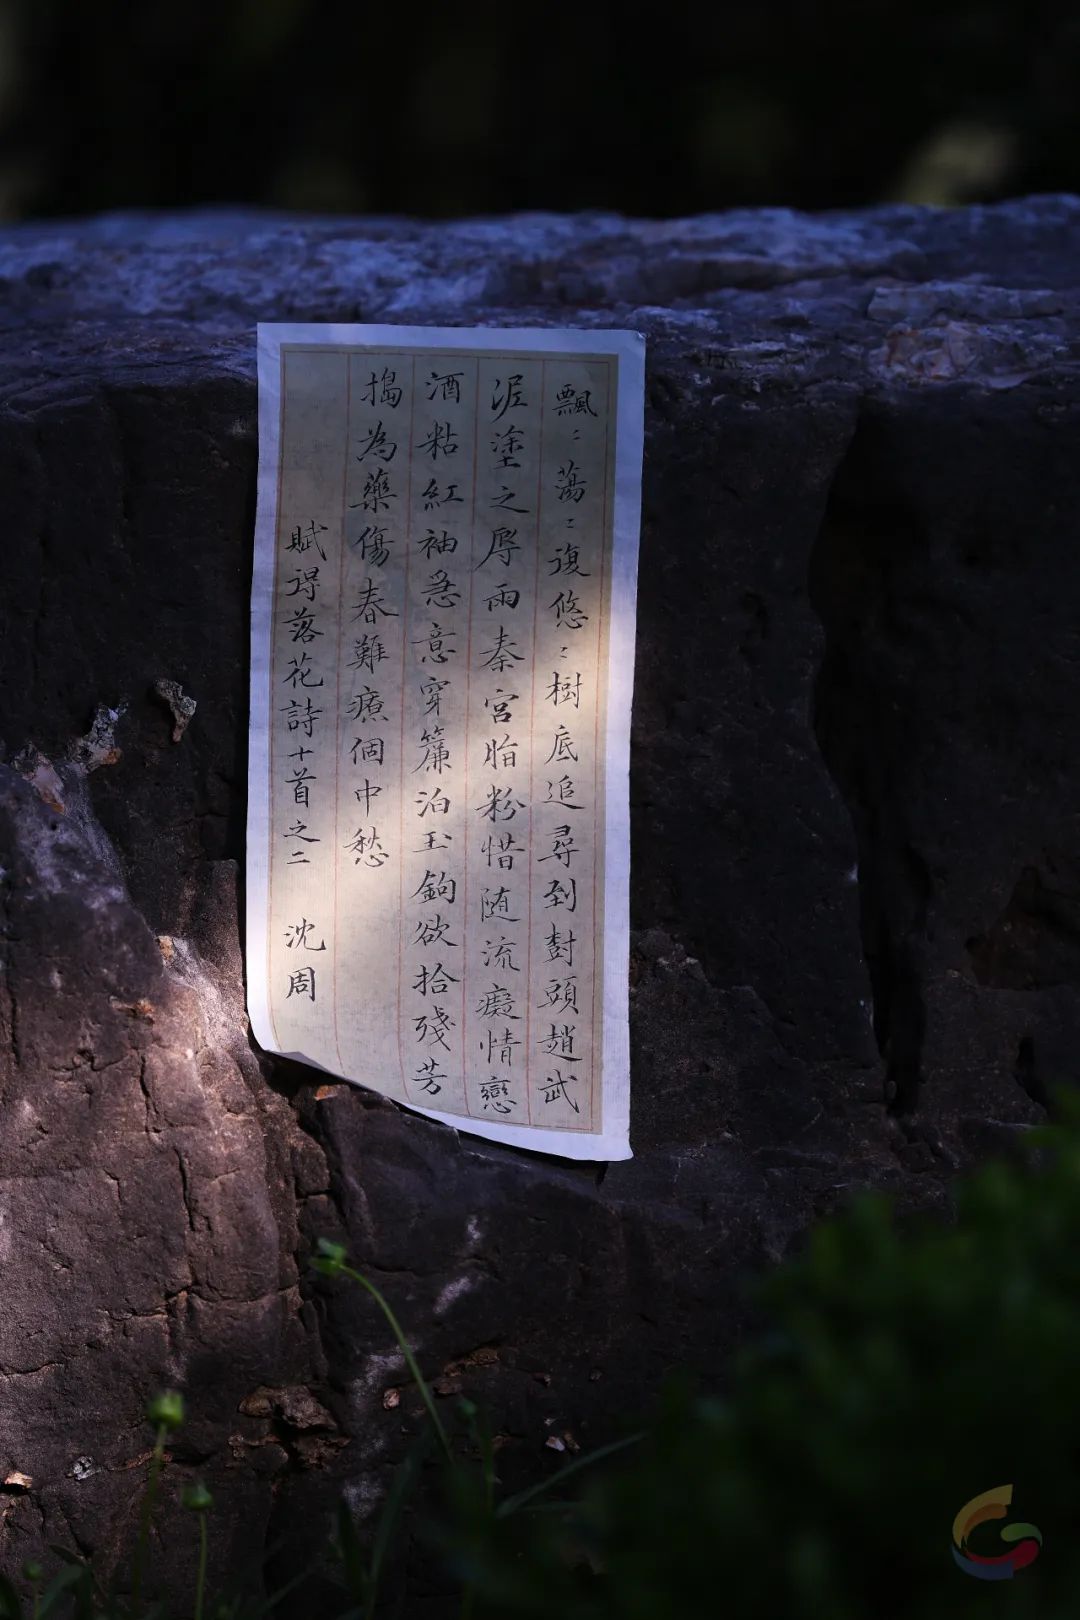 飄〻蕩〻復悠〻樹底追尋到樹頭趙武
泥塗之辱雨秦宮脂粉惜随流癡情戀
酒粘紅袖急意穿簾泊玉鉤欲拾殘芳
搗為藥傷春難療個中愁
賦得落花詩十首之二 沈周